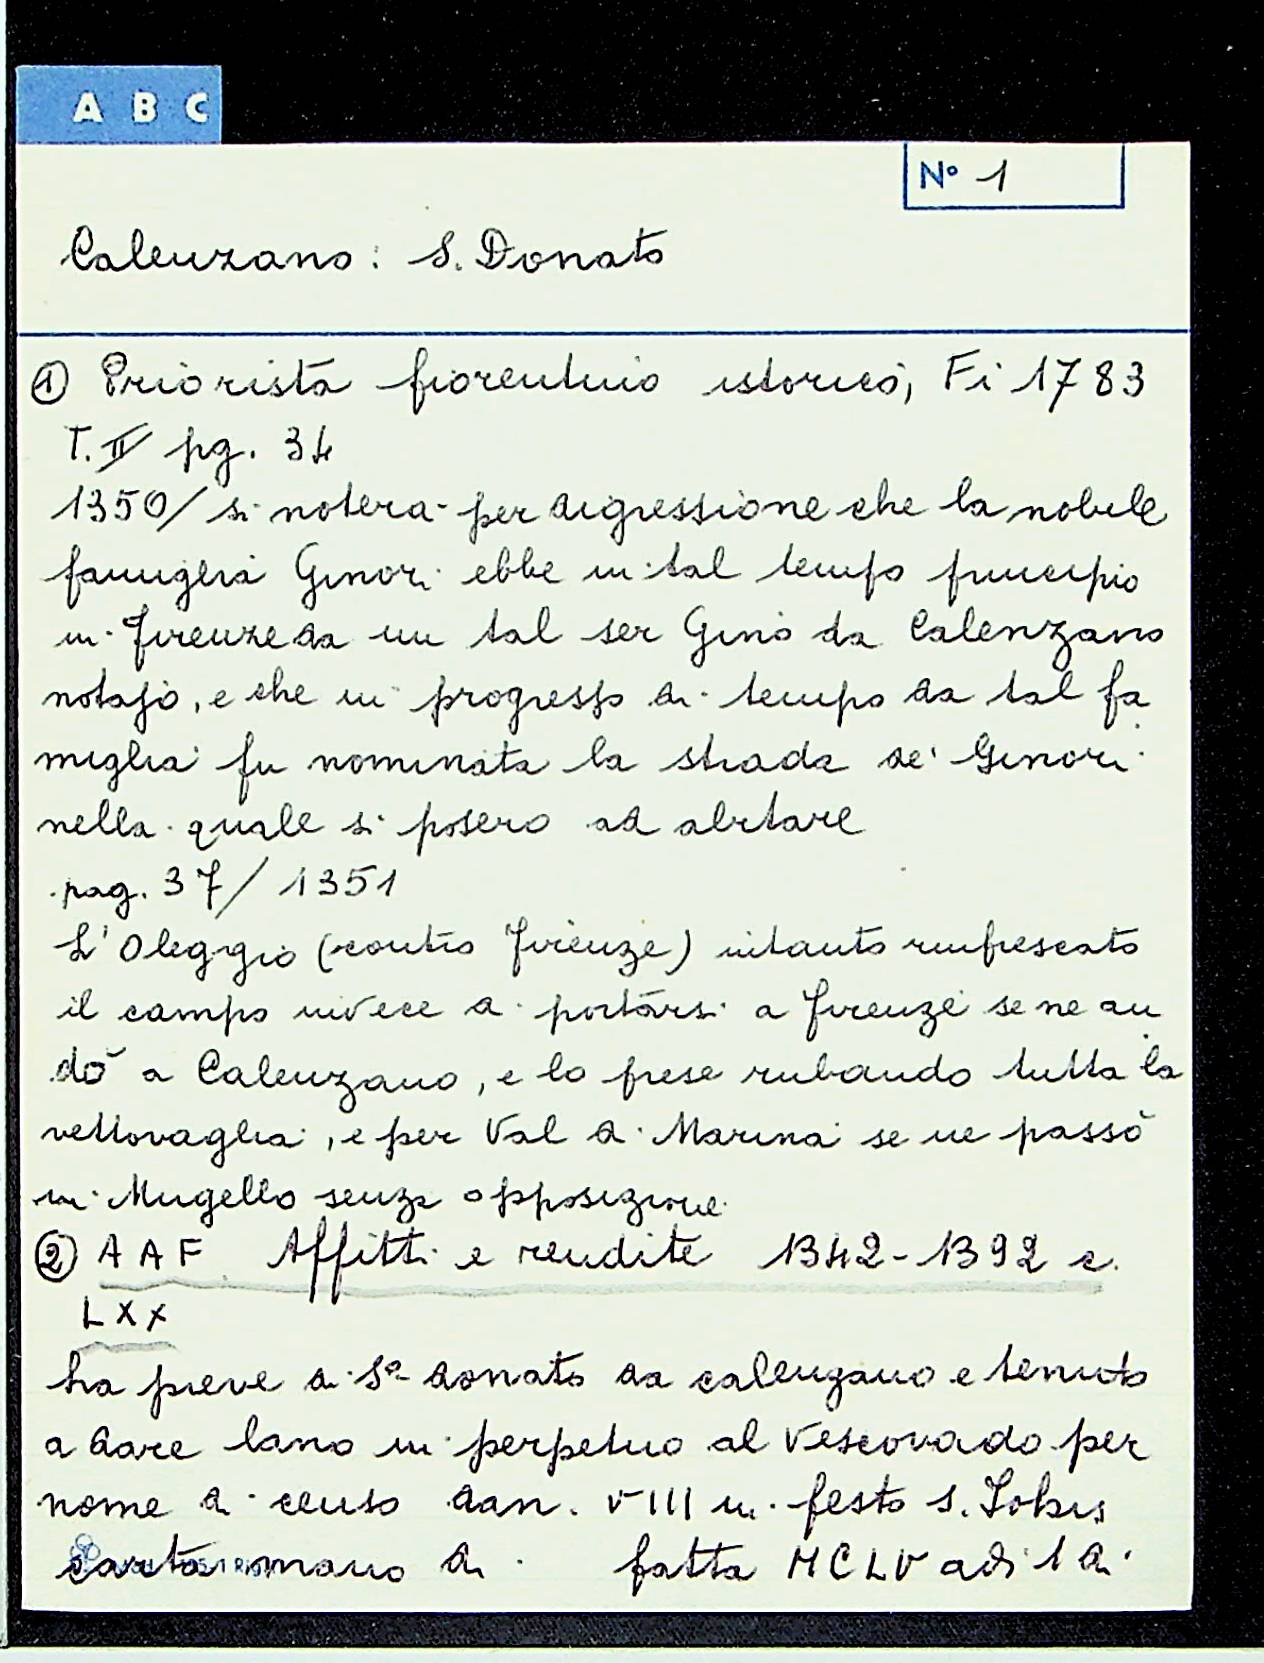 A B C
N° 1
Calenzano: S. Donato
① Priorista fiorentino istorico, Fi 1783
T. II pg. 34
1350/ si notera per digressione che la nobile
famiglia Ginori ebbe in tal tempo principio
in Firenze da un tal ser Gino da Calenzano
notajo, e che in progresso di tempo da tal fa
miglia fu nominata la strada de' Ginori
nella quale si posero ad abitare
pag. 37/ 1351
L'Oleggio (contro Firenze) intanto rinfrescato
il campo invece di portarsi a Firenze se ne an
dò a Calenzano, e lo prese rubando tutta la
vettovaglia, e per Val di Marina se ne passò
in Mugello senza opposizione
② A A F Affitti e rendite 1342-1392 c.
LXX
La pieve di Sº donato da calenzano e tenuto
a dare lano in perpetuo al Vescovado per
nome di censo dan. VIII in festo S.
carta mano di fatta MCLV adi 1 di